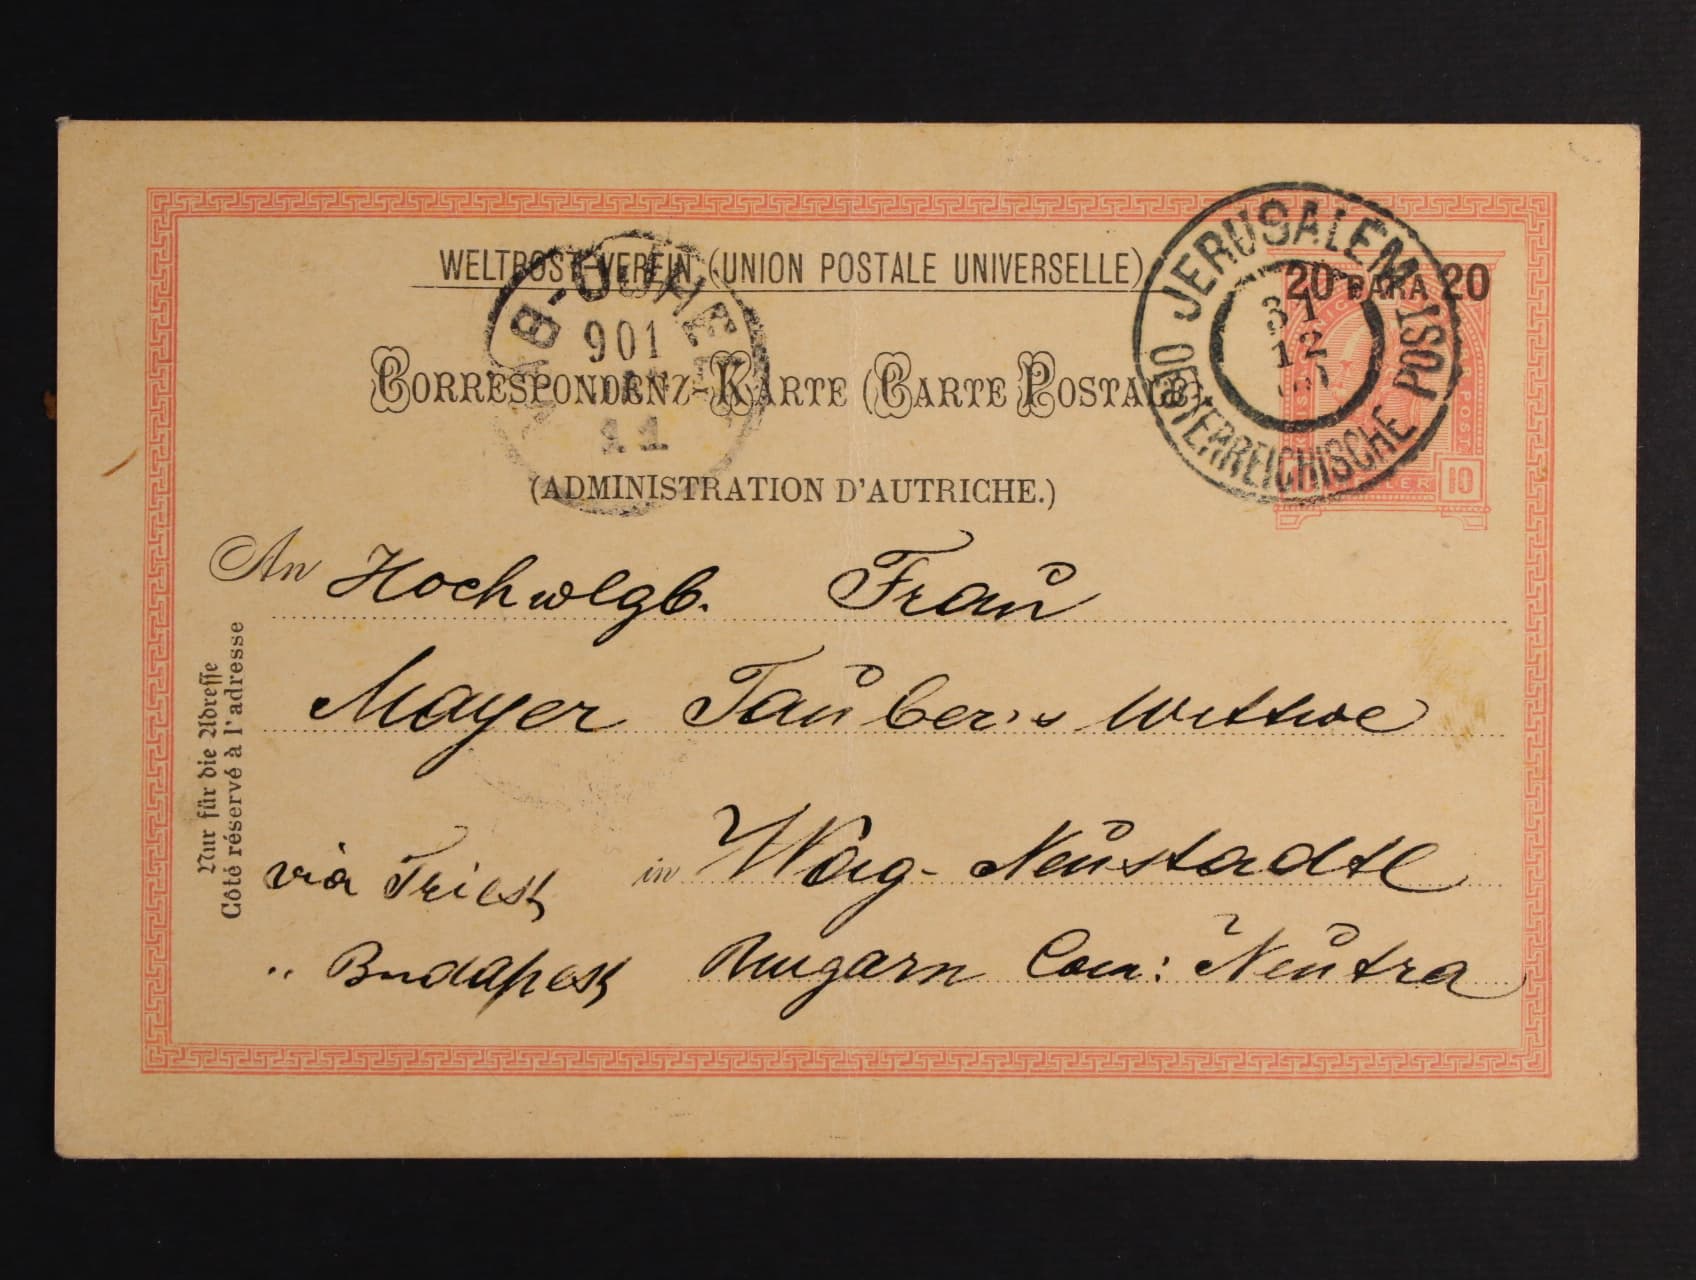 WELTPOST-VEREIN (UNION POSTALE UNIVERSELLE)
JERUSALEM
ÖSTERREICHISCHE POST
31
12
20 PARA 20
10
901
11
CORRESPONDENZ-KARTE (CARTE POSTALE)
(ADMINISTRATION D'AUTRICHE.)
An Hochwlgb. Frau
Mayer Tauber's Wittwe
via Triest in Wág-Neustadtl
" Budapest Ungarn Com: Neutra
Nur für die Adresse
Côté réservé à l'adresse